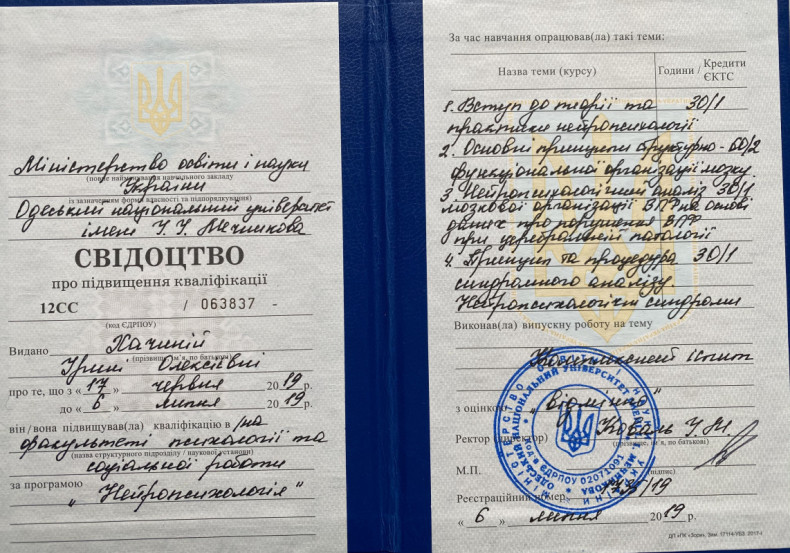 Міністерство освіти і науки
(повне найменування навчального закладу
України
із зазначенням форми власності та підпорядкування)
Одеський національний університет
імені І. І. Мечникова
СВІДОЦТВО
про підвищення кваліфікації
12СС / 063837 -
(код ЄДРПОУ)
Видано Хачиній
(прізвище, ім'я, по батькові)
Ірині Олексіївні
про те, що з « 17 » червня 2019 р.
до « 6 » липня 2019 р.
він/вона підвищував(ла) кваліфікацію в /на
факультеті психології та
(назва структурного підрозділу / наукової установи)
соціальної роботи
за програмою
„ Нейропсихологія "
За час навчання опрацював(ла) такі теми:
Назва теми (курсу) Години / Кредити ЄКТС
1. Вступ до теорії та 30/1
практики нейропсихології
2. Основні принципи структурно- 60/2
функціональної організації мозку.
3. Нейропсихологічний аналіз 30/1
мозкової організації ВПФ на основі
даних про порушення ВПФ
при церебральній патології
4. Принцип та процедура 30/1
синдромного аналізу.
Нейропсихологічні синдроми
Виконав(ла) випускну роботу на тему
іспит
з оцінкою „ відмінно "
Ректор (директор) Коваль І.М.
(прізвище, ім'я, по батькові)
М.П. (підпис)
Реєстраційний номер 173/19
« 6 » липня 2019 р.
МІНІСТЕРСТВО ОСВІТИ І НАУКИ УКРАЇНИ
ОДЕСЬКИЙ НАЦІОНАЛЬНИЙ УНІВЕРСИТЕТ ІМЕНІ І.І. МЕЧНИКОВА
ЄДРПОУ 02071091